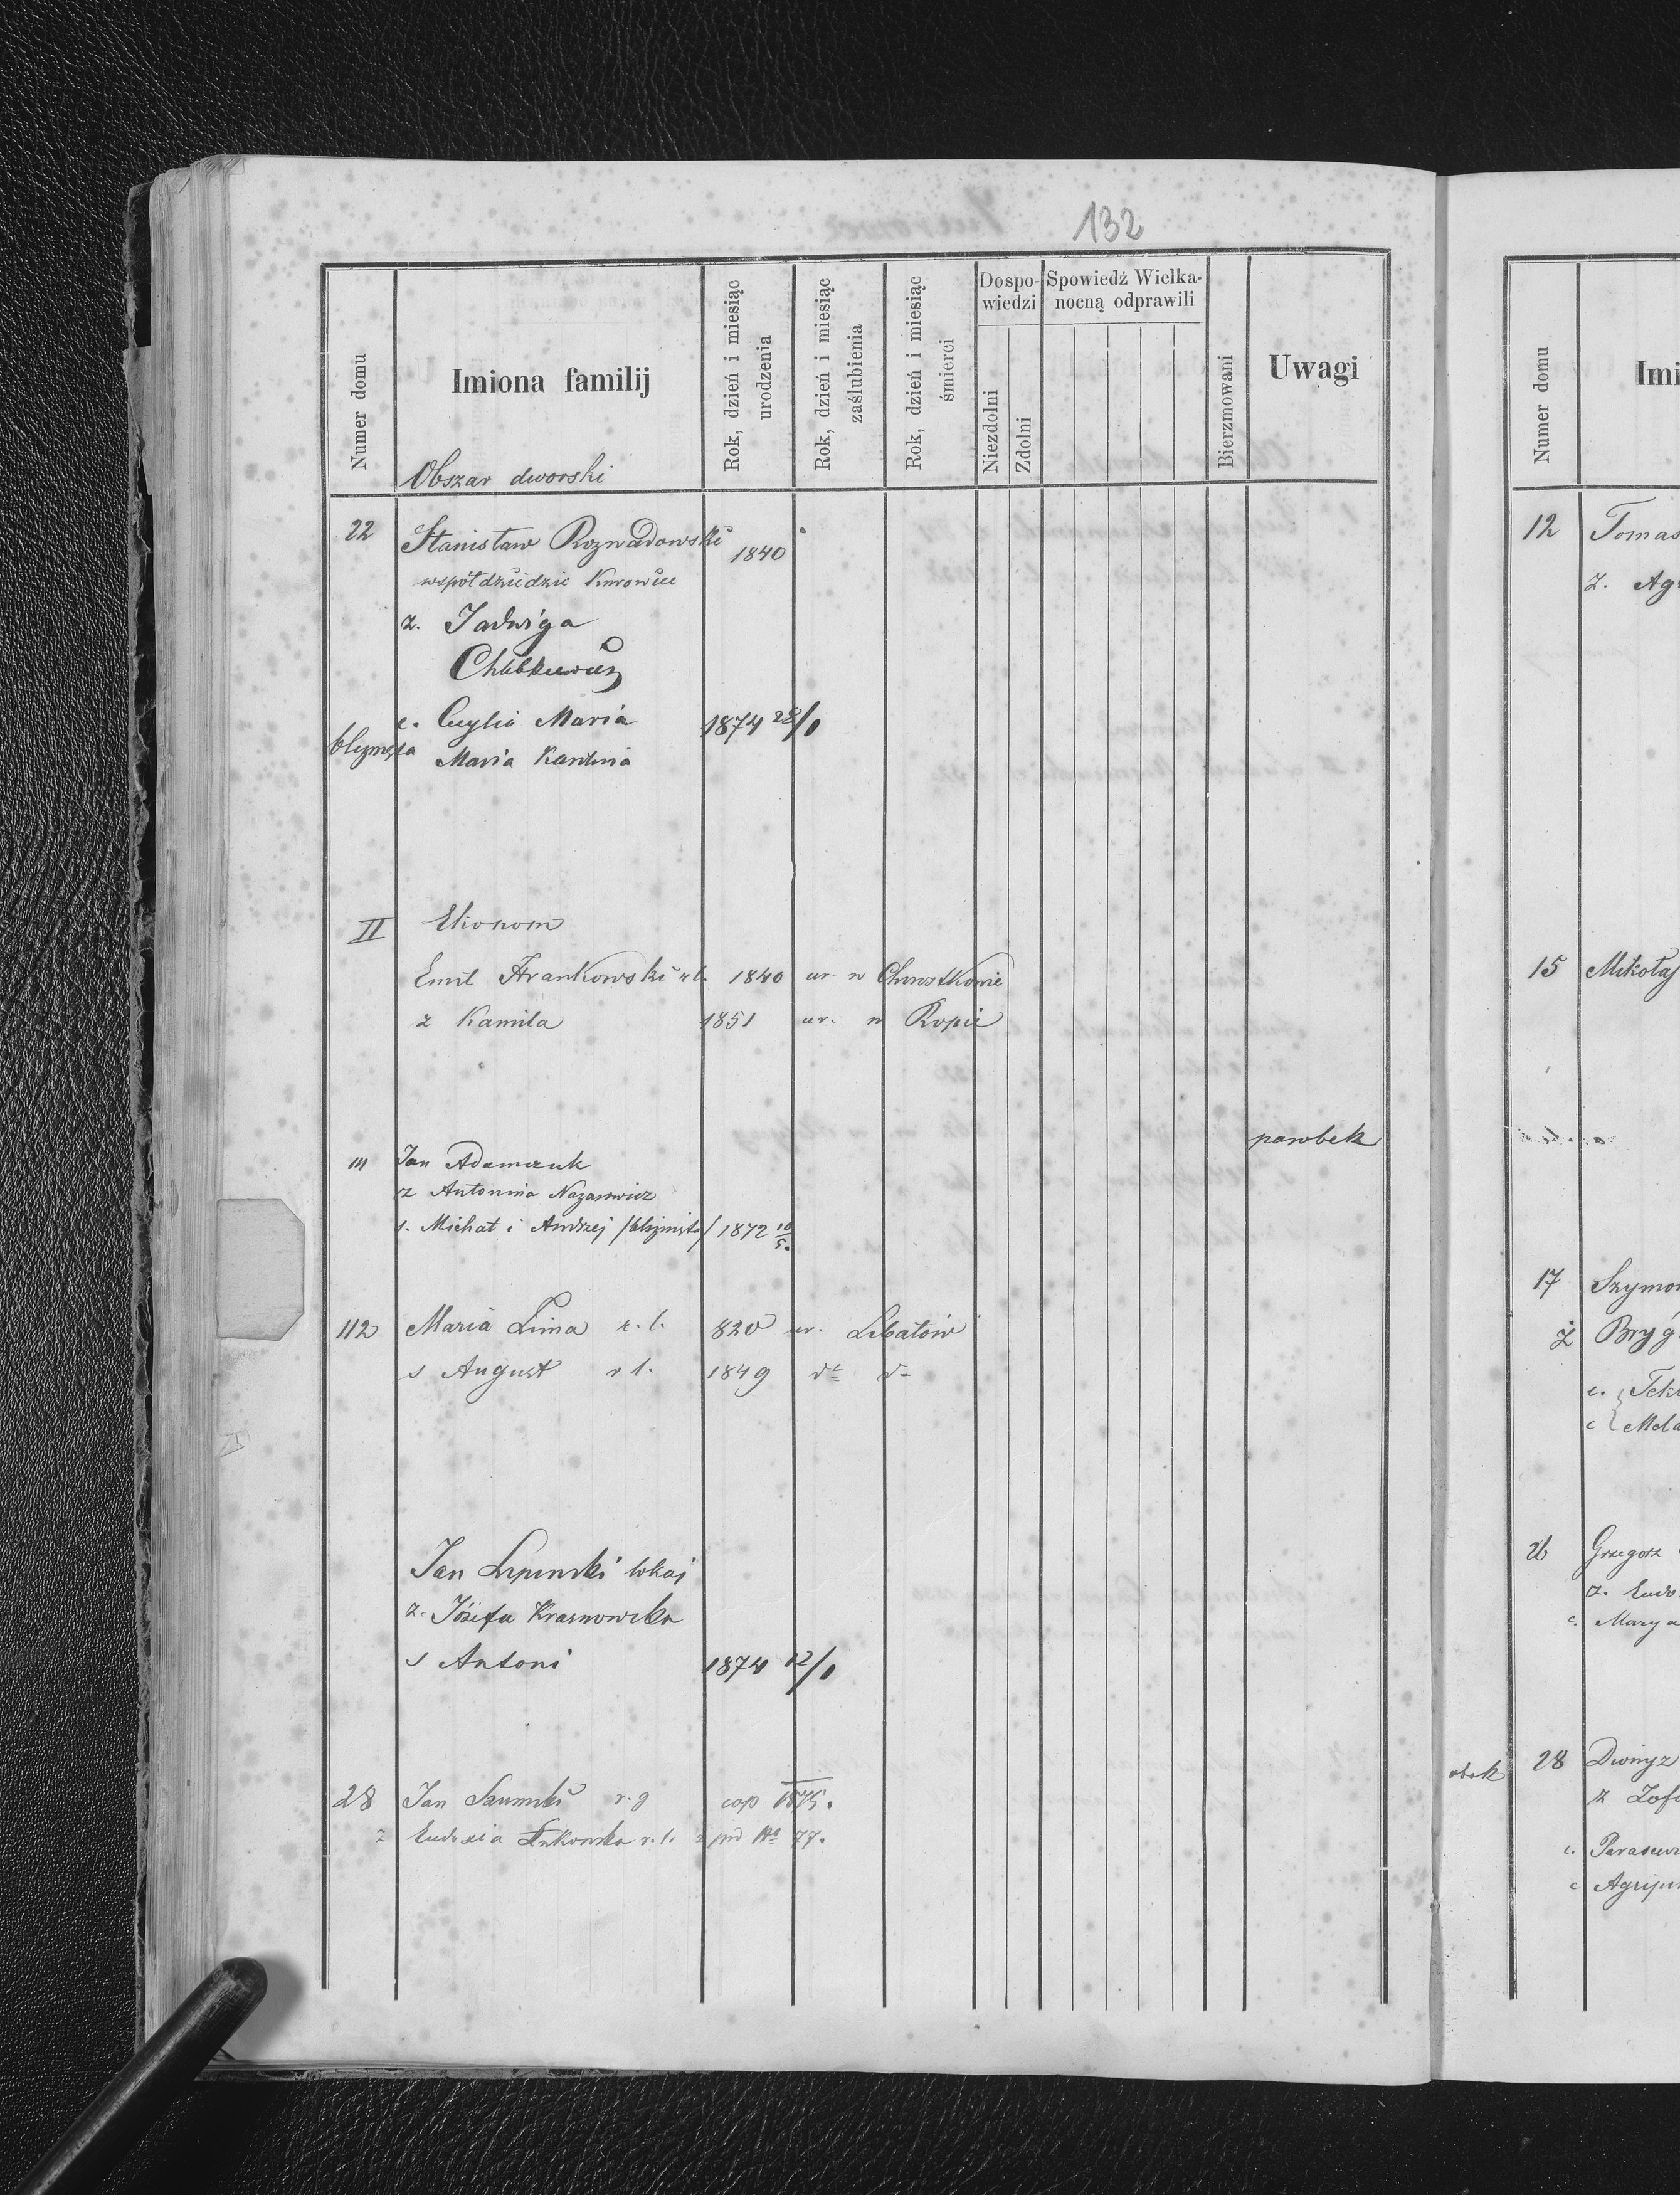 132
Numer domu
Imiona familij
Rok, dzień i miesiąc urodzenia
Rok, dzień i miesiąc zaślubienia
Rok, dzień i miesiąc śmierci
Dospowiedzi
Niezdolni
Zdolni
Spowiedź Wielkanocną odprawili
Bierzmowani
Uwagi
Obszar dworski
22 Stanisław Rozwadowski 1840
współdziedzic Kurowice
z. Jadwiga
c. Cecylia Maria 1874 28/1
bliźnięta Maria
II Ekonom
Emil Frankowski r.l. 1840 ur. w Chorostkowie
z Kamila 1851 ur. w Ropie
parobek
III Jan Adamczuk
z Antonina Nazarowicz
s. Michał i Andrzej /bliźnięta/ 1872 10/5.
112 Maria Lima r. l. 820 ur.
s August r l. 1849 dt d-
Jan Lipinski lokaj
z. Józefa Krasnowska
s Antoni 1874 12/1
28 Jan r. g cop 1875.
z Eudoxia r. l. z pod No 77.
Numer domu
Imi
12 Tomas
Z.
15 Mikołaj
17 Szymon
Ż Bryg
c.
c Mela
26 Grzegorz
z. Eudo
c. Marya
28 Dionyz
z Zofi
c. Parascew
c Agripin